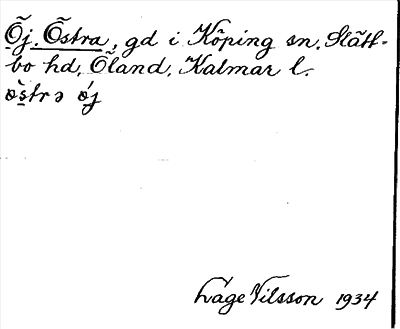 Öj, Östra, gd i Köping sn, Slätt-
bo hd, Öland, Kalmar l.
östrə ö́j
Låge Nilsson 1934